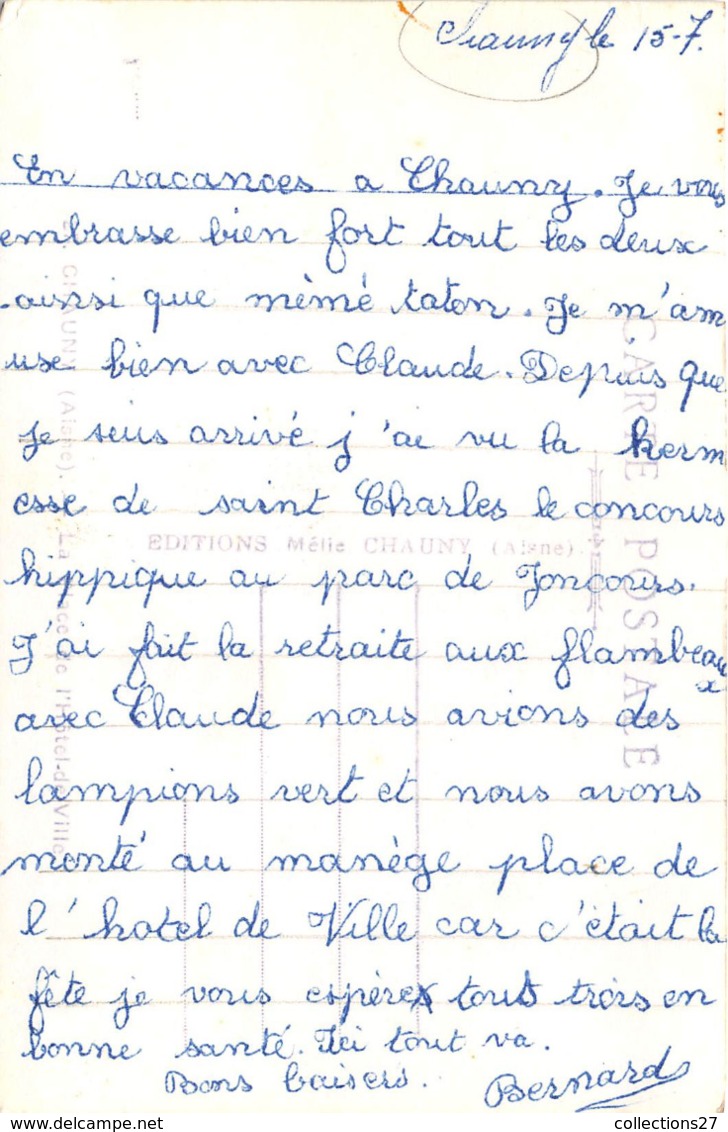 Chauny le 15-7.
En vacances a Chauny. Je vous
embrasse bien fort tout les deux
ainsi que mèmé taton. Je m'am
use bien avec Claude. Depuis que
je suis arrivé j'ai vu la kerm
esse de saint Charles le concours
EDITIONS Mélie CHAUNY (Aisne).
hippique au parc de Joncours.
J'ai fait la retraite aux flambeau
x
avec Claude nous avions des
lampions vert et nous avons
monté au manège place de
l'hotel de Ville car c'était la
fête je vous espère tout trois en
bonne santé. Ici tout va.
Bons baisers.
Bernard
CARTE POSTALE
CHAUNY (Aisne). - La Place de l'Hôtel-de-Ville
collections27